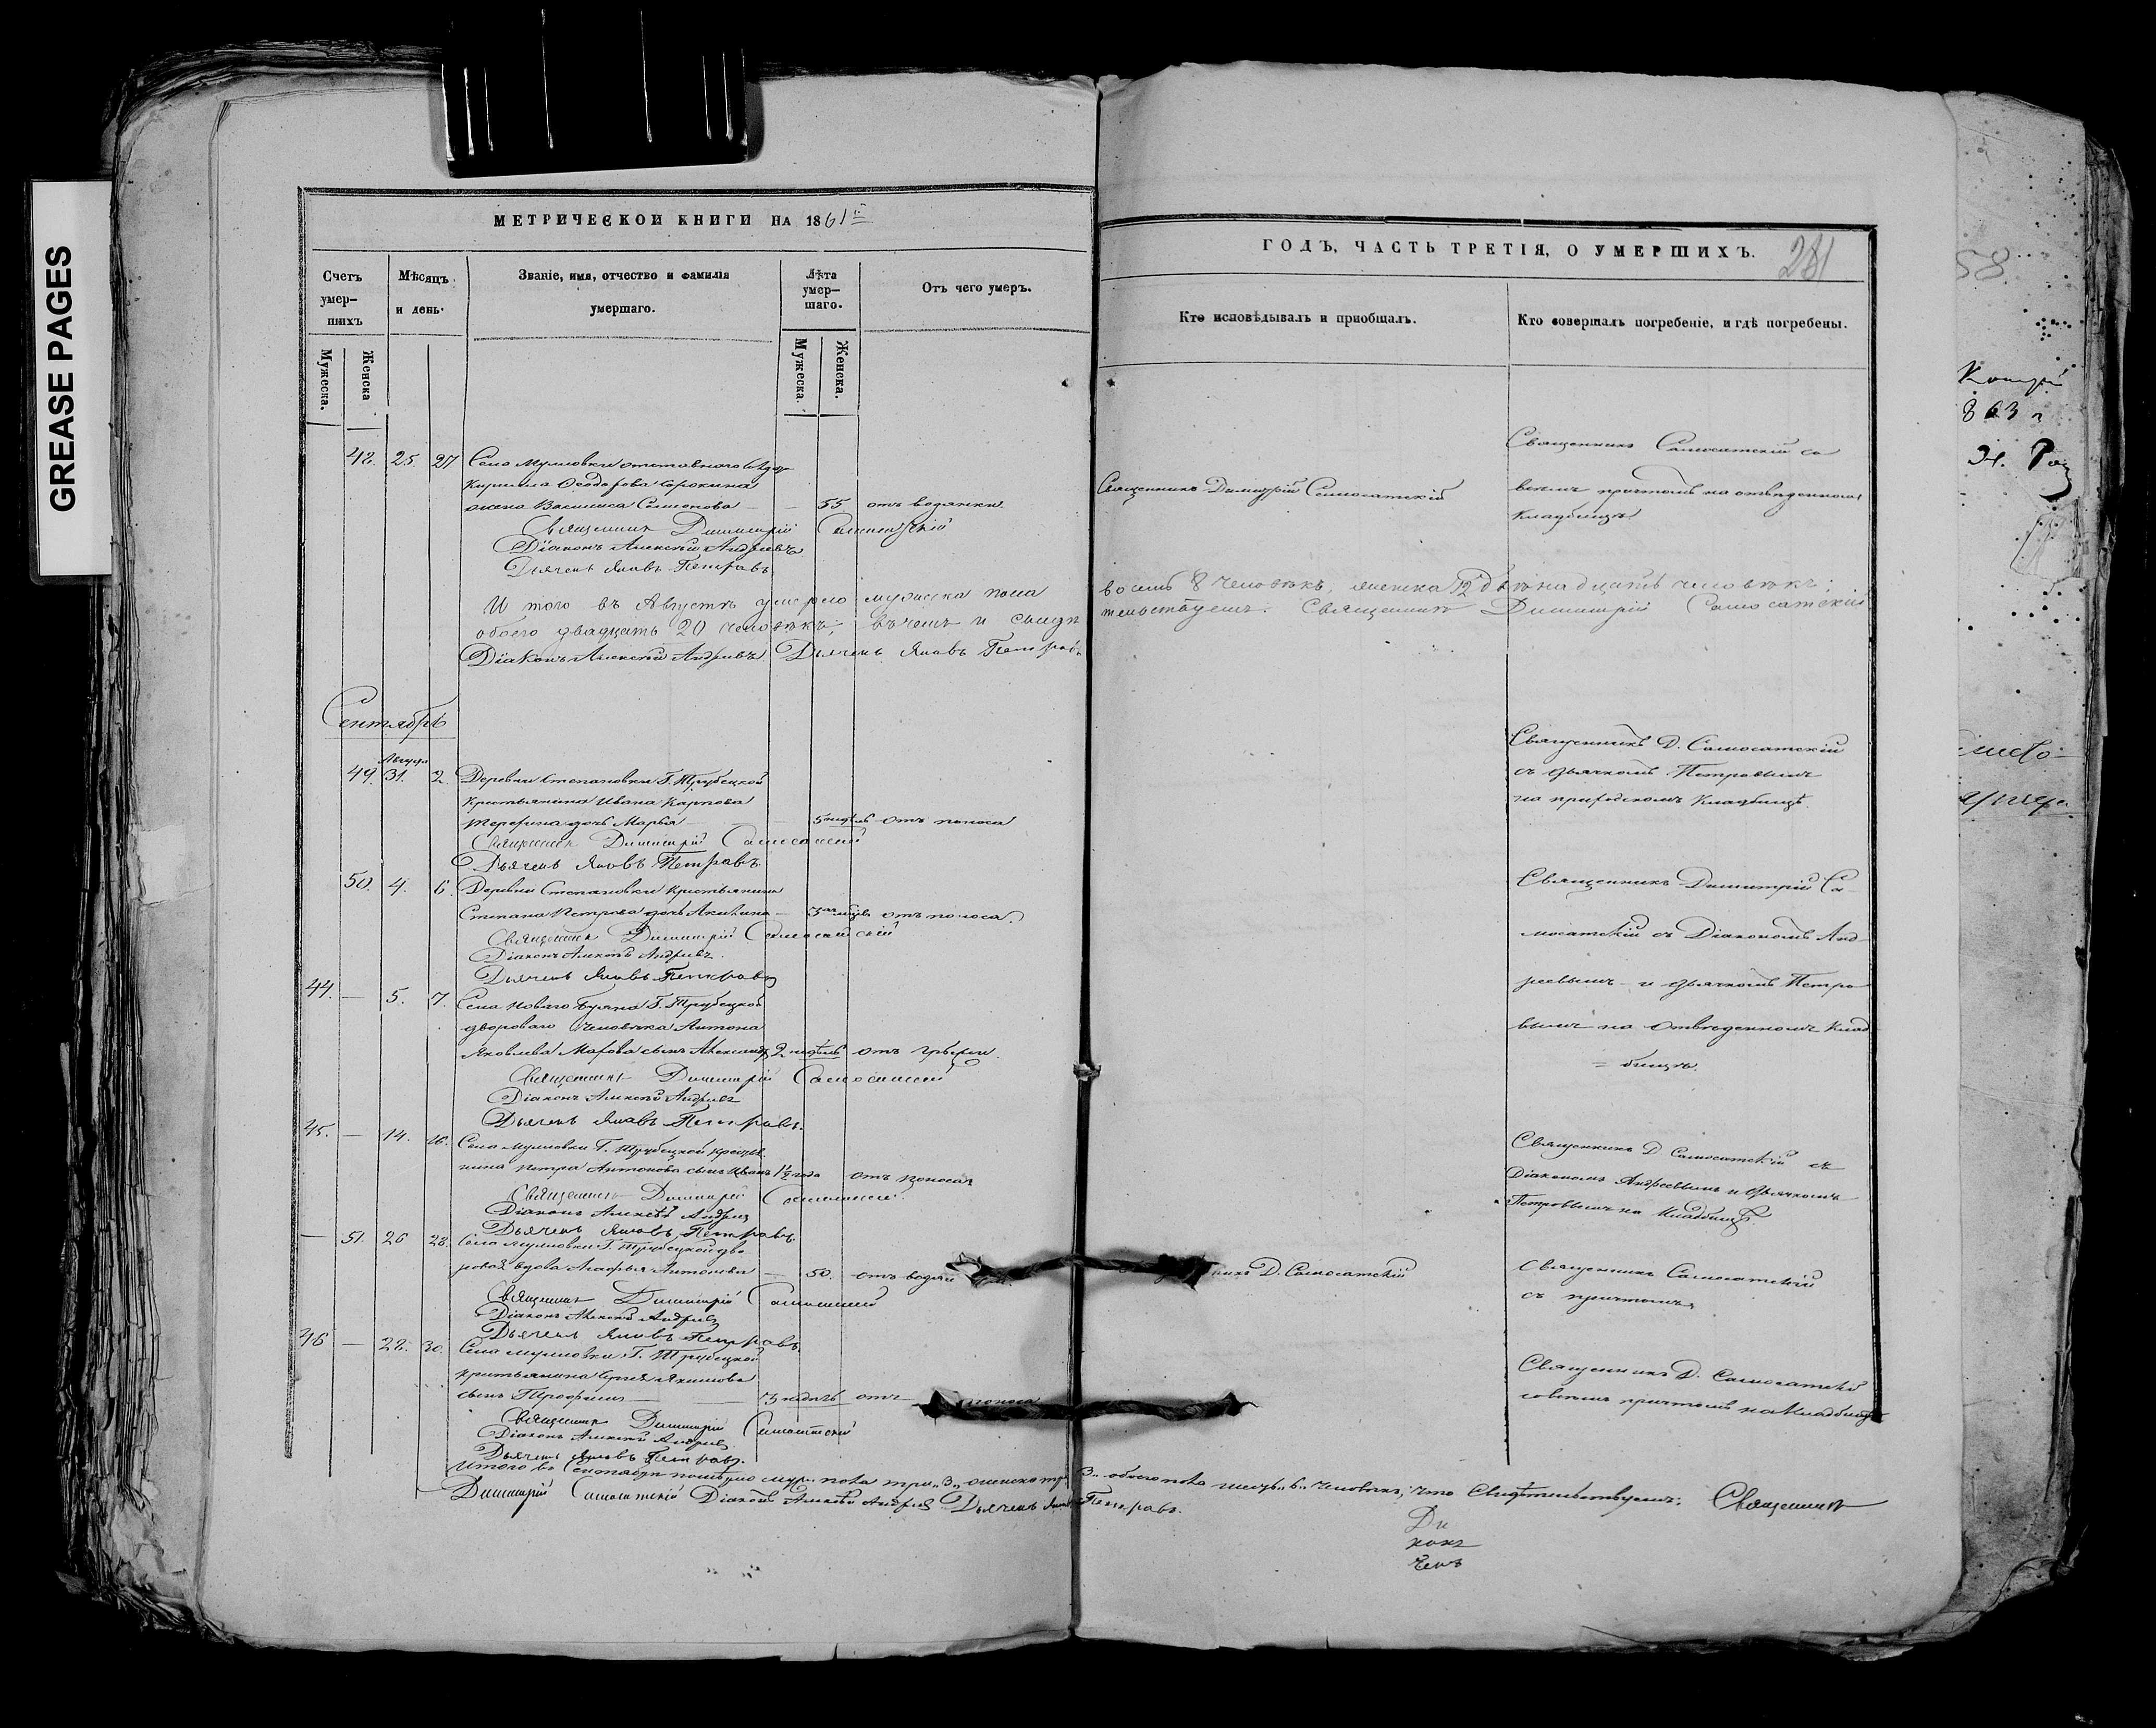 GREASE PAGES
МЕТРИЧЕСКОЙ КНИГИ НА 1861й
Счетъ умер-
шихъ
Мѣсяцъ
и день.
Званіе, имя, отчество и фамилія
умершаго.
Лѣта
умер-
шаго.
Отъ чего умеръ.
Мужеска.
Женска
Мужеска.
Женска.
48. 25. 27 Села Мулловки отставного
Кирилла Ѳеодорова Сорокина
жена Василиса Семенова — — 55 отъ водянки
Священникъ Димитрій Самосатскій
Діаконъ Алексѣй Андреевъ
Дьячекъ Яковъ Петровъ
И того въ Августѣ умерло мужеска пола
обоего двадцать 20 человѣкъ; въ чемъ и свидѣ
Діаконъ Алексѣй Андреевъ Дьячекъ Яковъ Петровъ
Сентябрь
Август
49. 31. 2. Деревни Степановки Г. Трубецкой
Крестьянина Ивана Карпова
дочь Марья — — 5 недѣль отъ поноса
Священникъ Димитрій Самосатскій
Дьячекъ Яковъ Петровъ.
50. 4. 6. Деревни Степановки крестьянина
Степана Петрова дочь Акилина — 3 мѣсяц. отъ поноса.
Священникъ Димитрій Самосатскій
Діаконъ Алексѣй Андреевъ.
Дьячекъ Яковъ Петровъ
44. — 5. 7. Села Новаго Буяна Г. Трубецкой
двороваго человѣка Антона
Яковлева сынъ Александръ 2 недѣль отъ
Священникъ Димитрій Самосатскій
Діаконъ Алексѣй Андреевъ
Дьячекъ Яковъ Петровъ.
45. — 14. 16. Села Мулловки Г. Трубецкой крестья
нина Петра Антонова сынъ Иванъ 1½ года отъ поноса
Священникъ Димитрій Самосатскій
Діаконъ Алексѣй Андреевъ
Дьячекъ Яковъ Петровъ.
— 51. 26 28. Села Мулловки Г. Трубецкой дво
ровая вдова Агафья Антонова — 50. отъ водян
Священникъ Димитрій Самосатскій
Діаконъ Алексѣй Андреевъ
Дьячекъ Яковъ Петровъ.
46 — 28. 30. Села Мулловки Г. Трубецкой
крестьянина Сергѣя Якимова
сынъ Трофимъ — — 3 недѣль отъ поноса
Священникъ Димитрій Самосатскій
Діаконъ Алексѣй Андреевъ
Дьячекъ Яковъ Петровъ.
Итого въ Сентябрѣ померло муж. пола три „3„ женска три
Димитрій Самосатскій Діаконъ Алексѣй Андреевъ Дьячекъ Яковъ
ГОДЪ, ЧАСТЬ ТРЕТІЯ, О УМЕРШИХЪ.
281
Кто исповѣдывалъ и пріобщалъ.
Кто совершалъ погребеніе, и гдѣ погребены.
Священникъ Самосатскій со
Священникъ Димитрій Самосатскій
всѣмъ причтомъ на отведенномъ
Кладбищѣ
восемь 8 человѣкъ, женска 12 двѣнадцать человѣкъ;
тельствуемъ. Священникъ Димитрій Самосатскій
Священникъ Д. Самосатскій
съ дьячкомъ Петровымъ
на приходскомъ Кладбищѣ.
Священникъ Димитрій Са-
мосатскій съ Діакономъ Анд-
реевымъ и дьячкомъ Петро
вымъ на отведенномъ Клад
= бищѣ.
Священникъ Д Самосатскій съ
Діакономъ Андреевымъ и дьячкомъ
Петровымъ на Кладбищѣ.
икъ Д. Самосатскій
Священникъ Самосатскій
съ причтомъ
Священникъ Д. Самосатскій
со всѣмъ причтомъ на Кладбищѣ
3„ обоего пола шесть „6„ человѣкъ; что свидѣтельствуемъ: Священникъ
Петровъ.
Ди
конъ
чекъ
58.
863 г